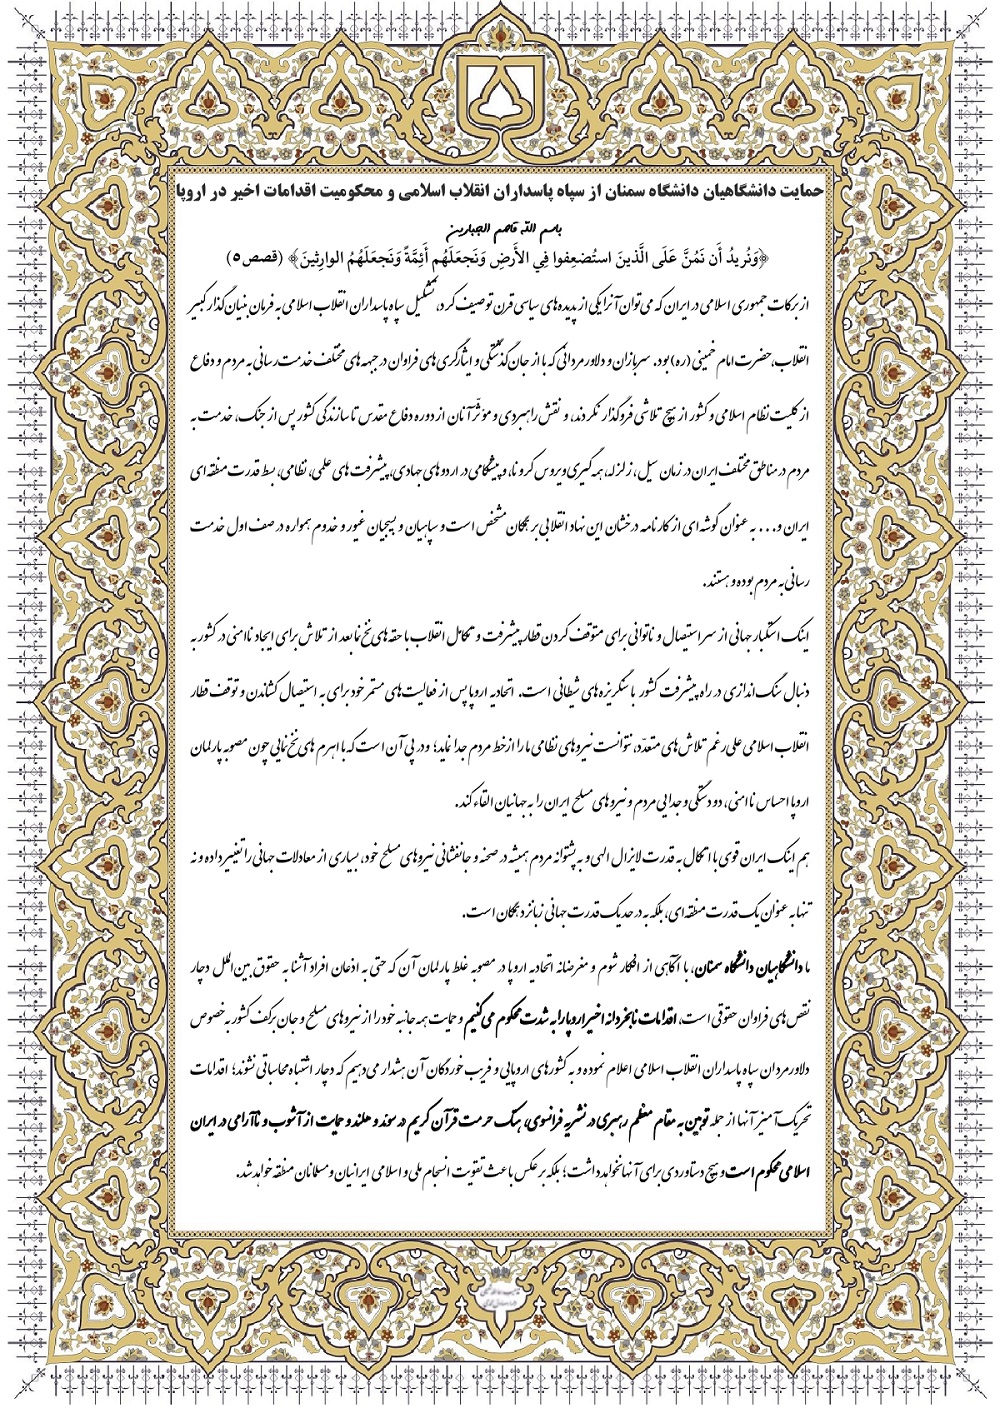 حمایت دانشگاهیان دانشگاه سمنان از سپاه پاسداران انقلاب اسلامی و محکومیت اقدامات اخیر در اروپا
باسم الله قاصم الجبارین
﴿وَنُريدُ أَن نَمُنَّ عَلَى الَّذينَ استُضعِفوا فِي الأَرضِ وَنَجعَلَهُم أَئِمَّةً وَنَجعَلَهُمُ الوارِثينَ﴾ (قصص ۵)
از برکات جمهوری اسلامی در ایران که می‌توان آنرا یکی از پدیده‌های سیاسی قرن توصیف کرد، تشکیل سپاه پاسداران انقلاب اسلامی به فرمان بنیان گذار کبیر
انقلاب، حضرت امام خمینی (ره) بود. سربازان و دلاورمردانی که با از جان گذشتگی و ایثارگری های فراوان در جبهه های مختلف خدمت رسانی به مردم و دفاع
از کلیت نظام اسلامی و کشور از هیچ تلاشی فروگذار نکردند، و نقش راهبردی و مؤثر آنان از دوره دفاع مقدس تا سازندگی کشور پس از جنگ، خدمت به
مردم در مناطق مختلف ایران در زمان سیل، زلزله، همه گیری ویروس کرونا، و پیشگامی در اردوهای جهادی، پیشرفت های علمی، نظامی، بسط قدرت منطقه ای
ایران و... به عنوان گوشه ای از کارنامه درخشان این نهاد انقلابی بر همگان مشخص است و سپاهیان و بسیجیان غیور و خدوم همواره در صف اول خدمت
رسانی به مردم بوده و هستند.
اینک استکبار جهانی از سر استیصال و ناتوانی برای متوقف کردن قطار پیشرفت و تکامل انقلاب با حقه های نخ نما بعد از تلاش برای ایجاد ناامنی در کشور به
دنبال سنگ اندازی در راه پیشرفت کشور با سنگریزه های شیطانی است. اتحادیه اروپا پس از فعالیت های مستمر خود برای به استیصال کشاندن و توقف قطار
انقلاب اسلامی علی رغم تلاش های متعدد، نتوانست نیروهای نظامی ما را از خط مردم جدا نماید؛ و در پی آن است که با اهرم های نخ نمایی چون مصوبه پارلمان
اروپا احساس ناامنی، دو دستگی و جدایی مردم و نیروهای مسلح ایران را به جهانیان القاء کند.
هم اینک ایران قوی با اتکال به قدرت لایزال الهی و به پشتوانه مردم همیشه در صحنه و جانفشانی نیروهای مسلح خود، بسیاری از معادلات جهانی را تغییر داده و نه
تنها به عنوان یک قدرت منطقه ای، بلکه به در حد یک قدرت جهانی زبانزد همگان است.
ما دانشگاهیان دانشگاه سمنان، با آگاهی از افکار شوم و مغرضانه اتحادیه اروپا در مصوبه غلط پارلمان آن که حتی به اذعان افراد آشنا به حقوق بین الملل دچار
نقص های فراوان حقوقی است، اقدامات نابخردانه اخیر اروپا را به شدت محکوم می کنیم و حمایت همه جانبه خود را از نیروهای مسلح و جان برکف کشور به خصوص
دلاورمردان سپاه پاسداران انقلاب اسلامی اعلام نموده و به کشورهای اروپایی و فریب خوردگان آن هشدار می دهیم که دچار اشتباه محاسباتی نشوند؛ اقدامات
تحریک آمیز آنها از جمله توهین به مقام معظم رهبری در نشریه فرانسوی، هتک حرمت قرآن کریم در سوئد و هلند و حمایت از آشوب و ناآرامی در ایران
اسلامی محکوم است و هیچ دستاوردی برای آنها نخواهد داشت؛ بلکه برعکس باعث تقویت انسجام ملی و اسلامی ایرانیان و مسلمانان منطقه خواهد شد.